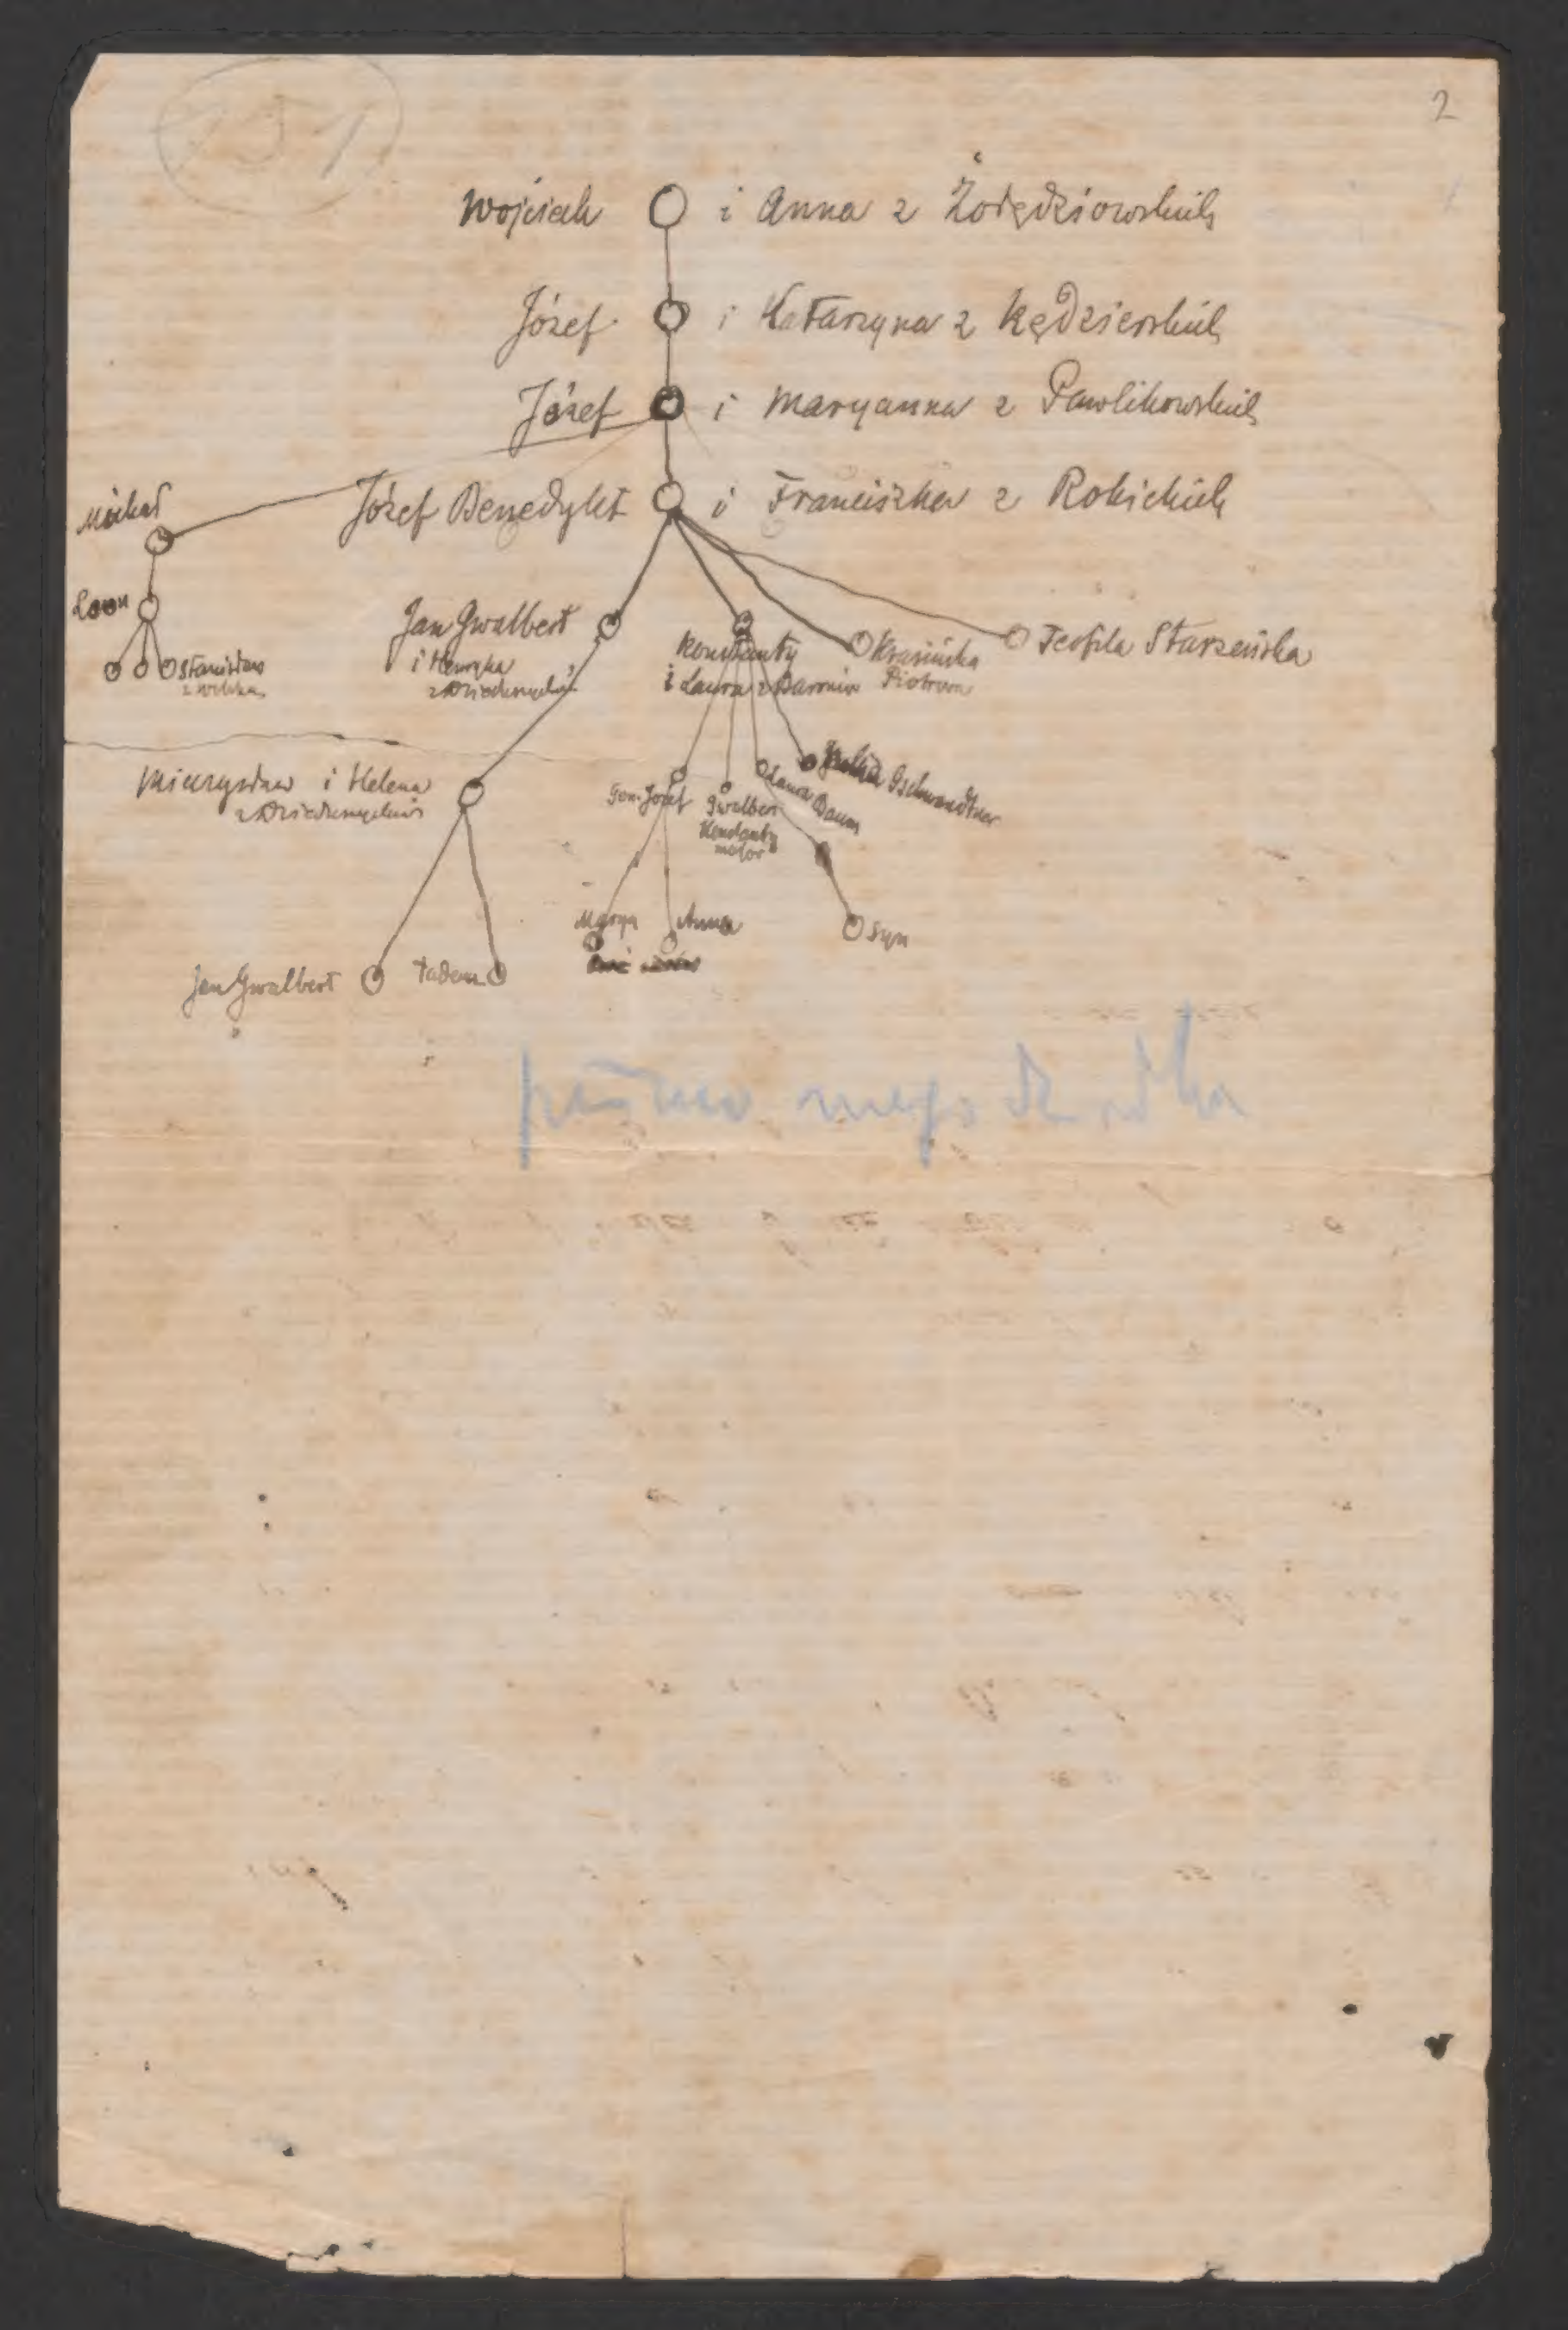 2
151
Wojciech i Anna z Żołędziowskich
Józef i Katarzyna z Kędzierskich
Józef i Maryanna z Pawlikowskich
Józef Benedykt i Franciszka z Rokickich
Michał
Leon
Stanisław
Jan Gwalbert
i Henryka
z Dzieduszyckich
Konstanty
i Laura z Baronin
Krasińska
Piotrowa
Teofila Starzeńska
Mieczysław i Helena
z Dzieduszyckich
Gen. Józef
Gwalbert
Konstanty
major
Laura Baum
Gschwandtner
Marya
Anna
syn
Jan Gwalbert
Tadeusz
pismo mego dziadka